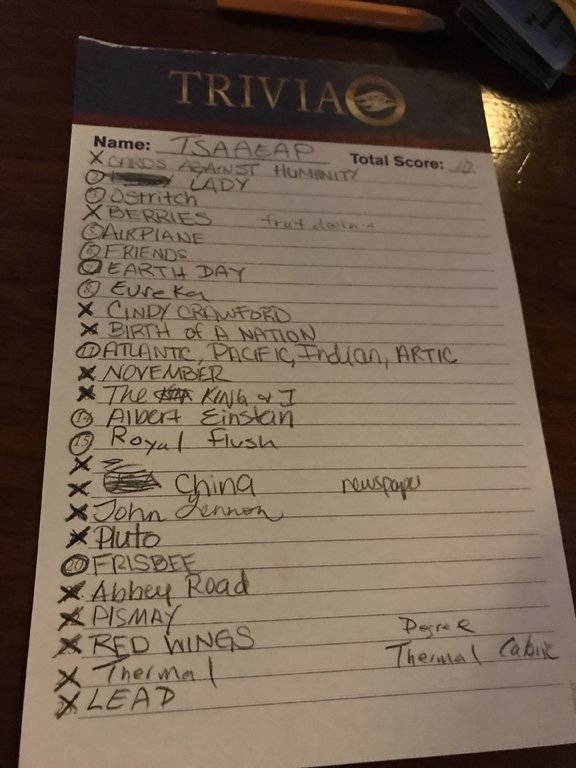 TRIVIA
Name: TSAAEAP Total Score: 10
X CARDS AGAINST HUMANITY
LADY
Ostritch
X BERRIES fruit doesn't
5 AIRPLANE
6 FRIENDS
EARTH DAY
8 Eureka
X CINDY CRAWFORD
X BIRTH of A NATION
11 ATLANTIC, PACIFIC, Indian, ARTIC
X NOVEMBER
X The KING & I
14 Albert Einstein
15 Royal flush
X
X China newspaper
X John Lennon
X Pluto
20 FRISBEE
X Abbey Road
X PISMAY
X RED WINGS Degree
X Thermal Thermal Cubic
X LEAD